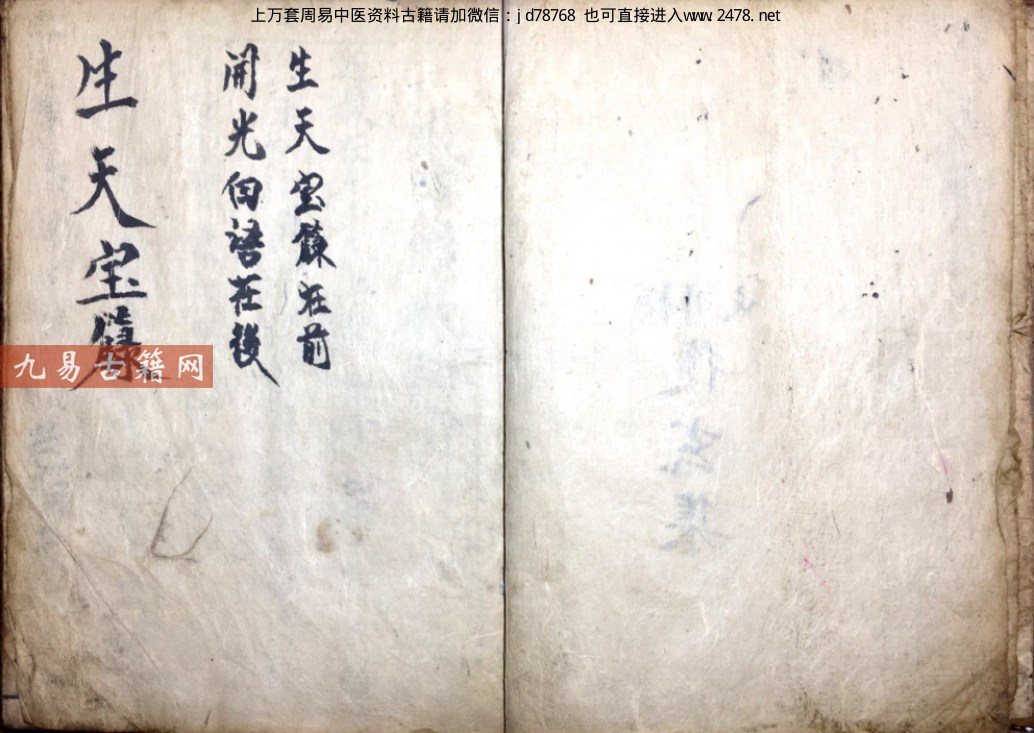 上万套周易中医资料古籍请加微信：jd78768 也可直接进入www.2478.net
生天宝籙在前
開光語在後
生天宝籙
九易古籍网